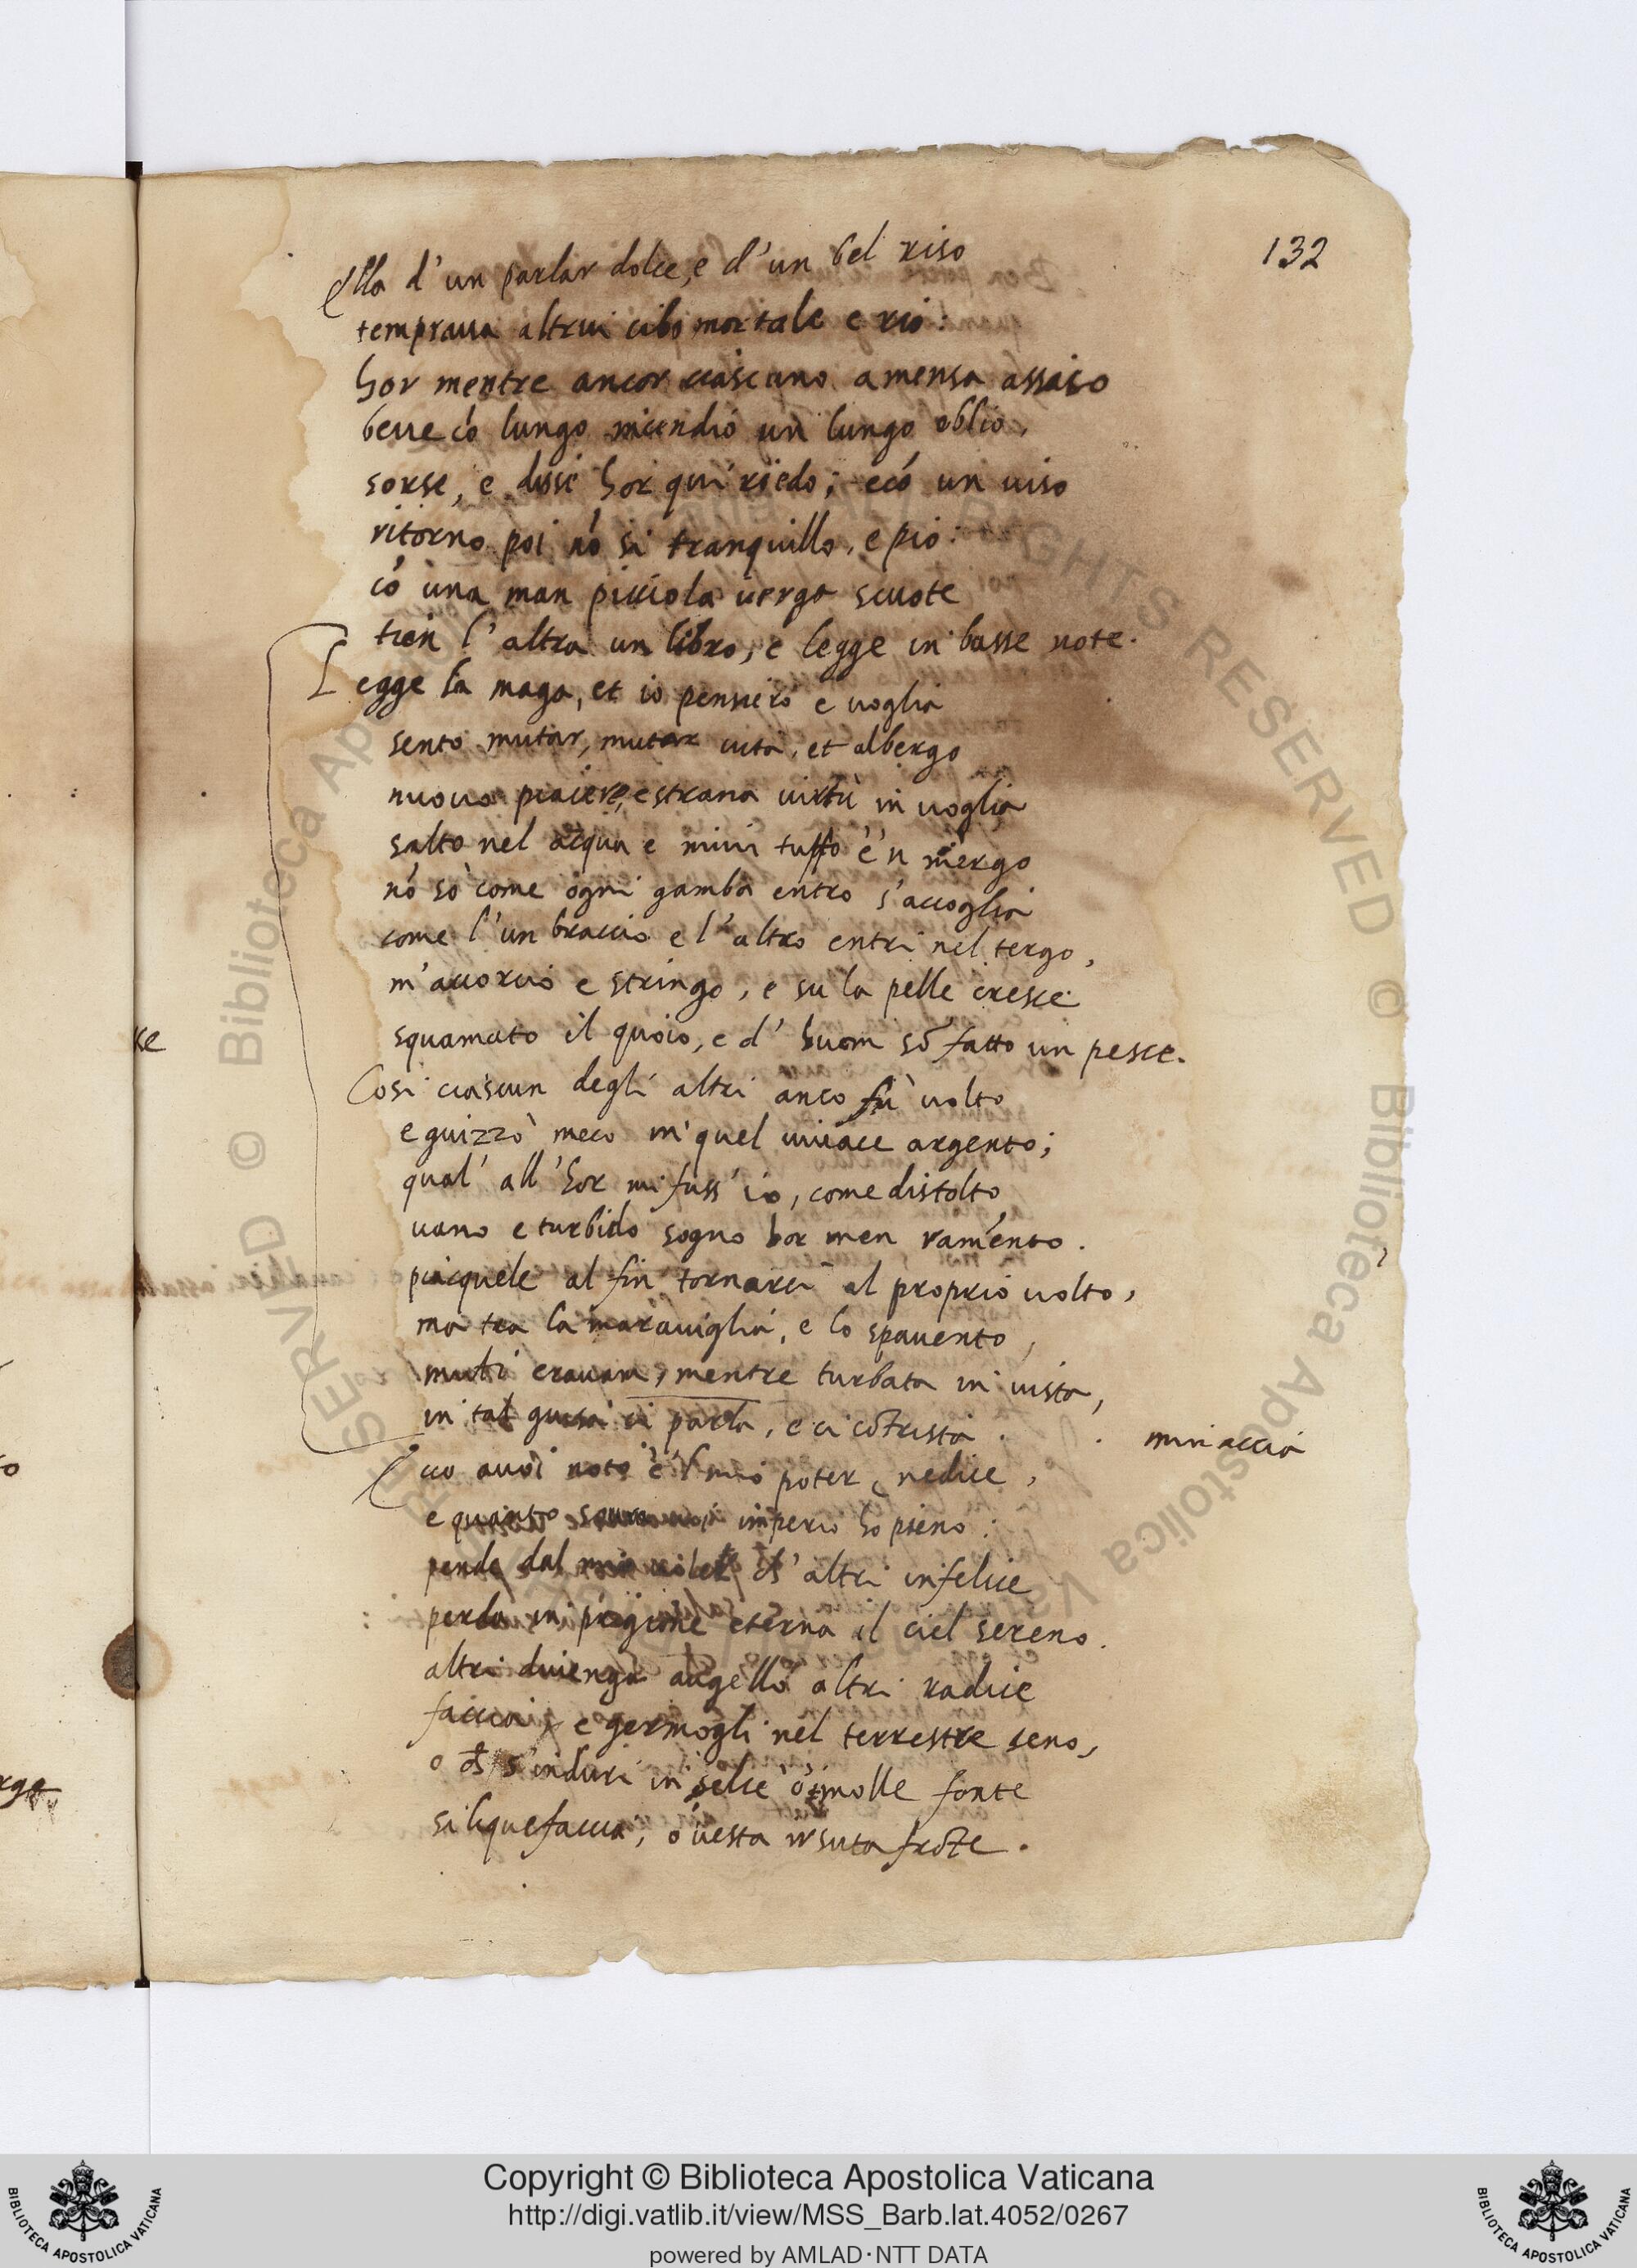 132
Ella d'un parlar dolce, e d'un bel riso
temprava altrui cibo mortale e rio:
hor mentre ancor ciascuno a mensa assiso
beve có lungo incendio un lungo oblio,
sorse, e disse hor qui riedo; e có un viso
ritorno poi nó si tranquillo, e pio:
có una man picciola verga scuote
tien l'altra un libro, e legge in basse note.
Legge la maga, et io pensiero e voglia
sento mutar, mutar vita, et albergo
nuovo piacere, e strana virtù in voglia
salto nel acqua e mivi tuffo e'n mergo
nó sò come ogni gamba entro s'accoglia
come l'un braccio e l'altro entri nel tergo,
m'accorcio e stringo, e su la pelle cresce
squamato il quoio, e d'huom só fatto un pesce.
Cosi ciascun degli altri anco fù volto
e guizzò meco in quel vivace argento;
qual' all'hor mi fuss'io, come di stolto
vano e turbido sogno hor men ramento.
piacquele al fin tornarci al proprio volto,
ma tra la maraviglia, e lo spavento,
muti eravam, mentre turbata in vista,
in tal guisa ci parla, e ci cótrista.
minaccia
Ecco a voi noto è'l mio poter, ne dice,
e quanto sovra voi imperio ho pieno:
pende dal mio voler ch'altri infelice
perda in prigione eterna il ciel sereno.
altri divenga augello altri radice
faccia, e germogli nel terrestre seno,
o ch s'induri in selce ò molle fonte
si liquefaccia, ò vesta irsuta fróte.
Copyright © Biblioteca Apostolica Vaticana
http://digi.vatlib.it/view/MSS_Barb.lat.4052/0267
powered by AMLAD·NTT DATA
BIBLIOTECA APOSTOLICA VATICANA
BIBLIOTECA APOSTOLICA VATICANA